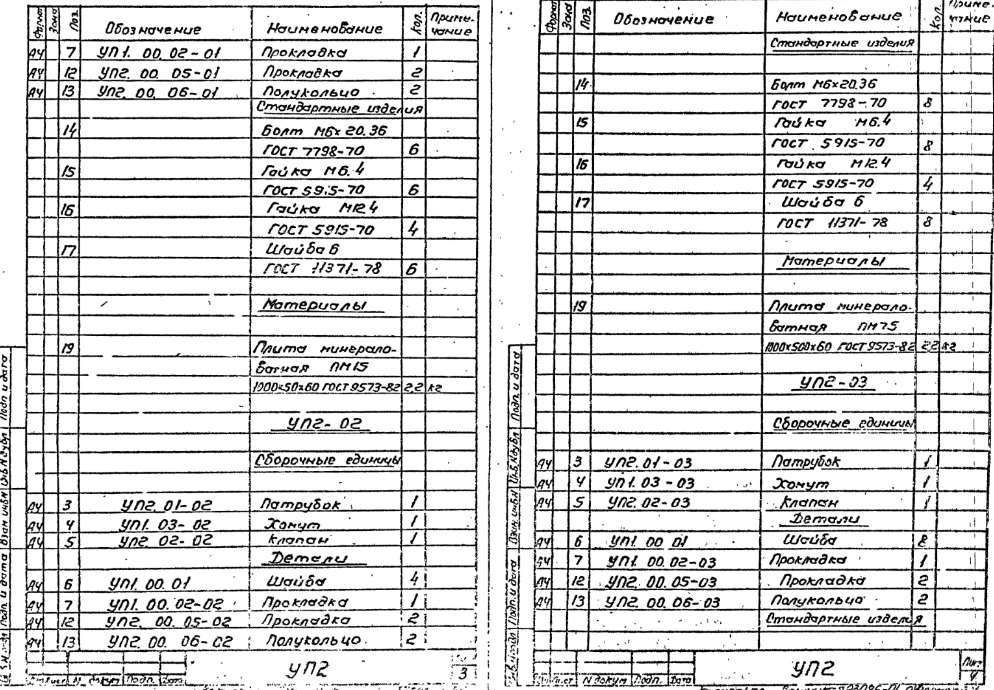 Формат Зона Поз. Обозначение Наименование Кол. Приме-
чание
А4 7 УП1. 00. 02-01 Прокладка 1
А4 12 УП2. 00. 05-01 Прокладка 2
А4 13 УП2. 00. 06-01 Полукольцо 2
Стандартные изделия
14 Болт М6х20.36
ГОСТ 7798-70 6
15 Гайка М6.4
ГОСТ 5915-70 6
16 Гайка М12.4
ГОСТ 5915-70 4
17 Шайба 6
ГОСТ 11371-78 6
Материалы
19 Плита минерало-
ватная ПМ15
1000х50х60 ГОСТ 9573-82 2,2 кг
УП2-02
Сборочные единицы
А4 3 УП2. 01-02 Патрубок 1
А4 4 УП1. 03-02 Хомут 1
А4 5 УП2. 02-02 Клапан 1
Детали
А4 6 УП1. 00. 01 Шайба 4
А4 7 УП1. 00. 02-02 Прокладка 1
А4 12 УП2. 00. 05-02 Прокладка 2
А4 13 УП2. 00. 06-02 Полукольцо 2
УП2 3
N докум Подп. Дата
Подп. и дата
Взам инв.N Инв.N дубл Подп. и дата
Формат Зона Поз. Обозначение Наименование Кол. Приме-
чание
Стандартные изделия
14 Болт М6х20.36
ГОСТ 7798-70 8
15 Гайка М6.4
ГОСТ 5915-70 8
16 Гайка М12.4
ГОСТ 5915-70 4
17 Шайба 6
ГОСТ 11371-78 8
Материалы
19 Плита минерало-
ватная ПМ75
1000х500х60 ГОСТ 9573-82 2,2 кг
УП2-03
Сборочные единицы
А4 3 УП2. 01-03 Патрубок 1
А4 4 УП1. 03-03 Хомут 1
А4 5 УП2. 02-03 Клапан 1
Детали
А4 6 УП1. 00 01 Шайба 8
А4 7 УП1. 00. 02-03 Прокладка 1
А4 12 УП2. 00. 05-03 Прокладка 2
А4 13 УП2. 00. 06-03 Полукольцо 2
Стандартные изделия
УП2 Лист
4
N докум Подп. Дата
Подп. и дата
Взам. инв.N Инв.N дубл Подп. и дата